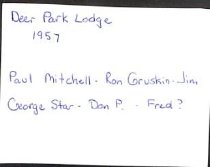 Deer Park Lodge
1957
Paul Mitchell - Ron Gruskin - Jim
George Star - Don P. - Fred?